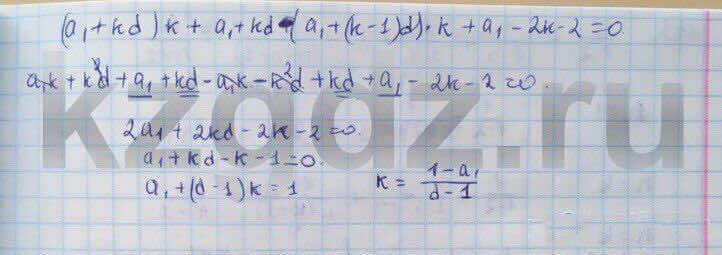 (a₁+kd)k + a₁+kd-(a₁+(k-1)d)·k + a₁-2k-2=0
a₁k + k²d + a₁ + kd - a₁k - k²d + kd + a₁ - 2k-2=0.
2a₁ + 2kd - 2k - 2 =0.
a₁+kd-k-1=0.
a₁+(d-1)k=1 k = (1-a₁)/(d-1)
kzgdz.ru